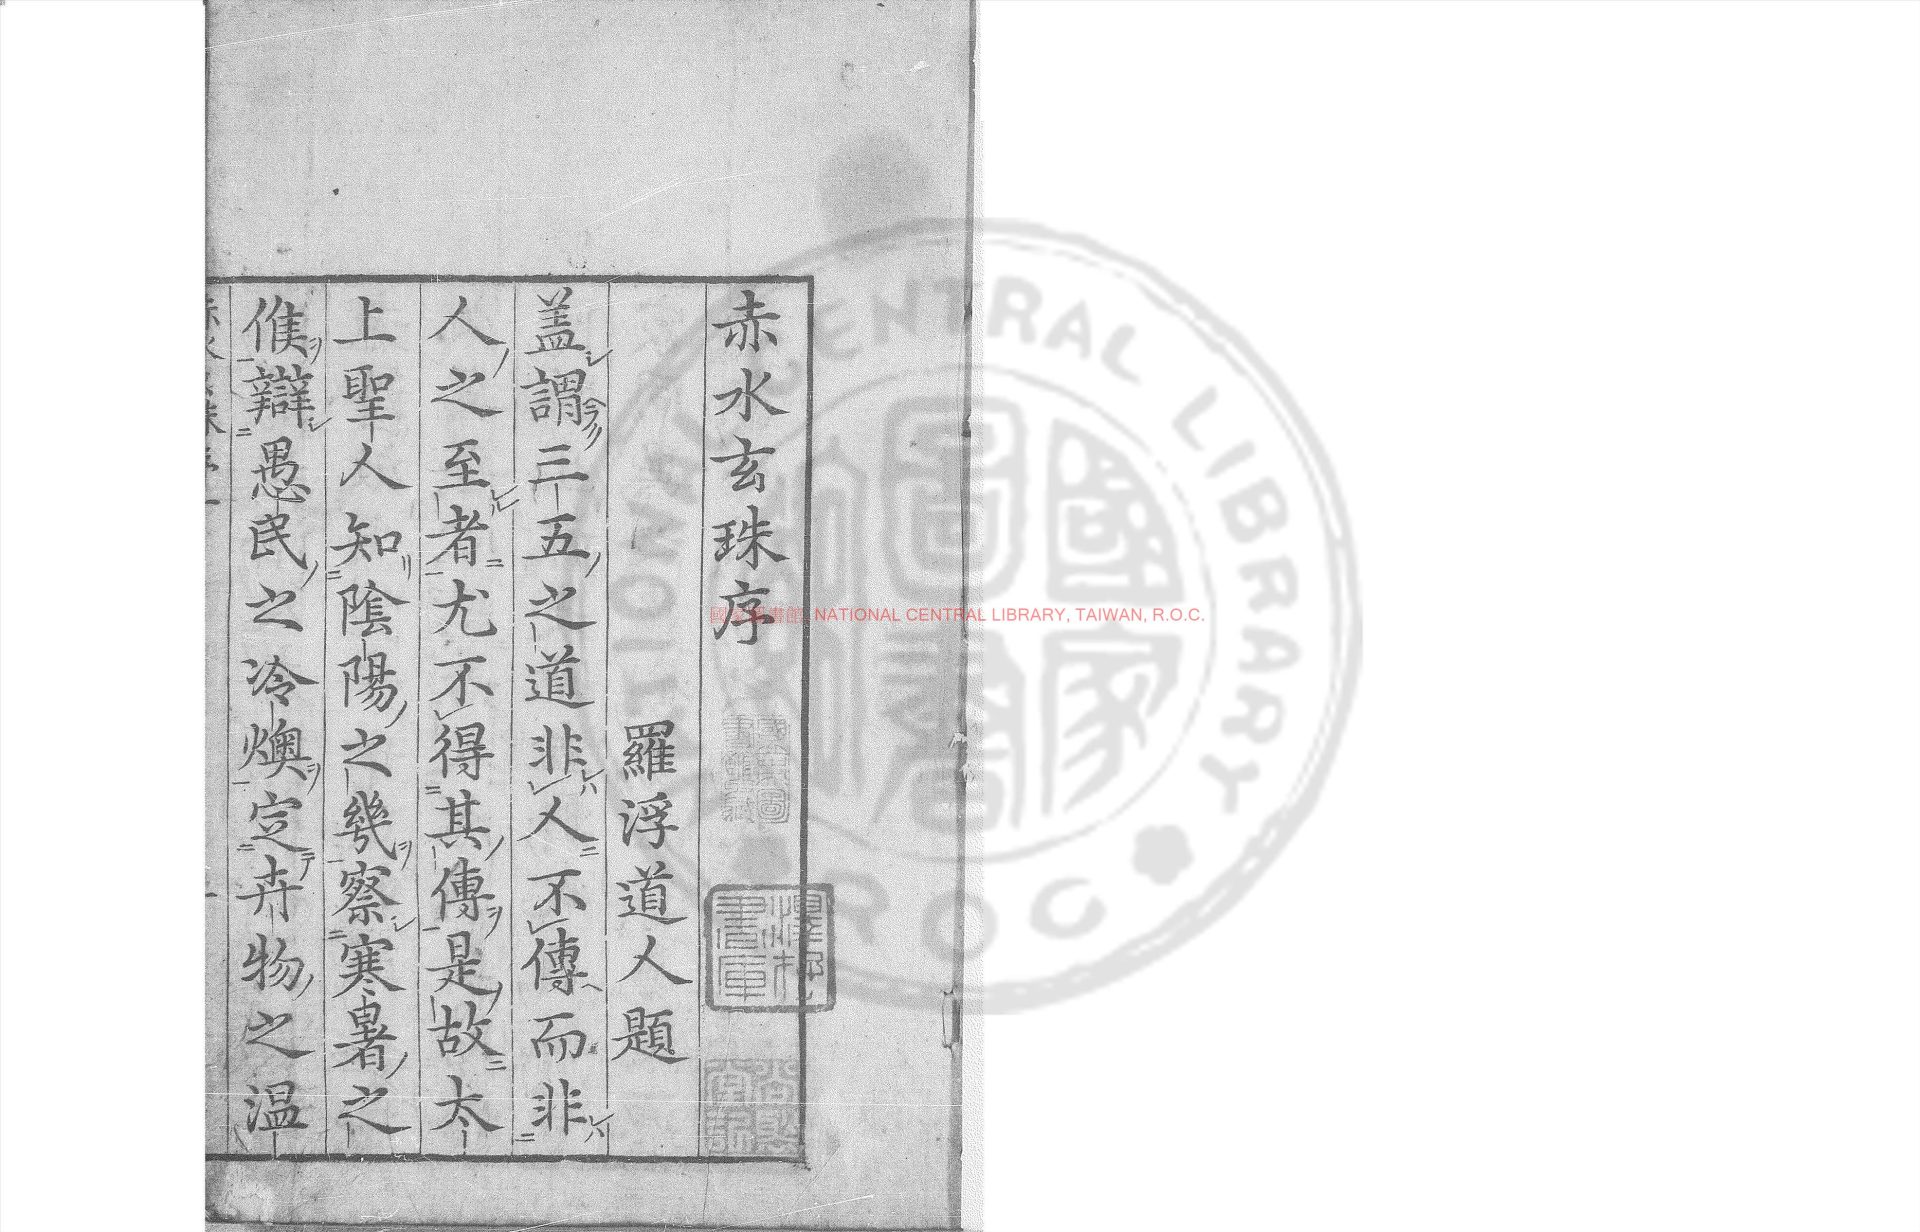 赤水玄珠序
羅浮道人題
盖謂三五之道非人不傳而非
人之至者尤不得其傳是故太
上聖人知陰陽之幾察寒暑之
候辯愚民之冷燠定卉物之温
國家圖書館 NATIONAL CENTRAL LIBRARY, TAIWAN, R.O.C.
NATIONAL CENTRAL LIBRARY
ROC
國家圖書